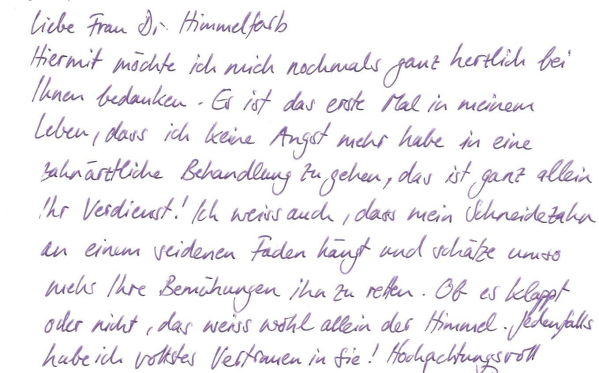 Liebe Frau Dr. Himmelfarb
Hiermit möchte ich mich nochmals ganz herzlich bei
Ihnen bedanken. Es ist das erste Mal in meinem
Leben, dass ich keine Angst mehr habe in eine
zahnärztliche Behandlung zu gehen, das ist ganz allein
Ihr Verdienst! Ich weiss auch, dass mein Schneidezahn
an einem seidenen Faden hängt und schätze umso
mehr Ihre Bemühungen ihn zu retten. Ob es klappt
oder nicht, das weiss wohl allein der Himmel. Jedenfalls
habe ich vollstes Vertrauen in Sie! Hochachtungsvoll